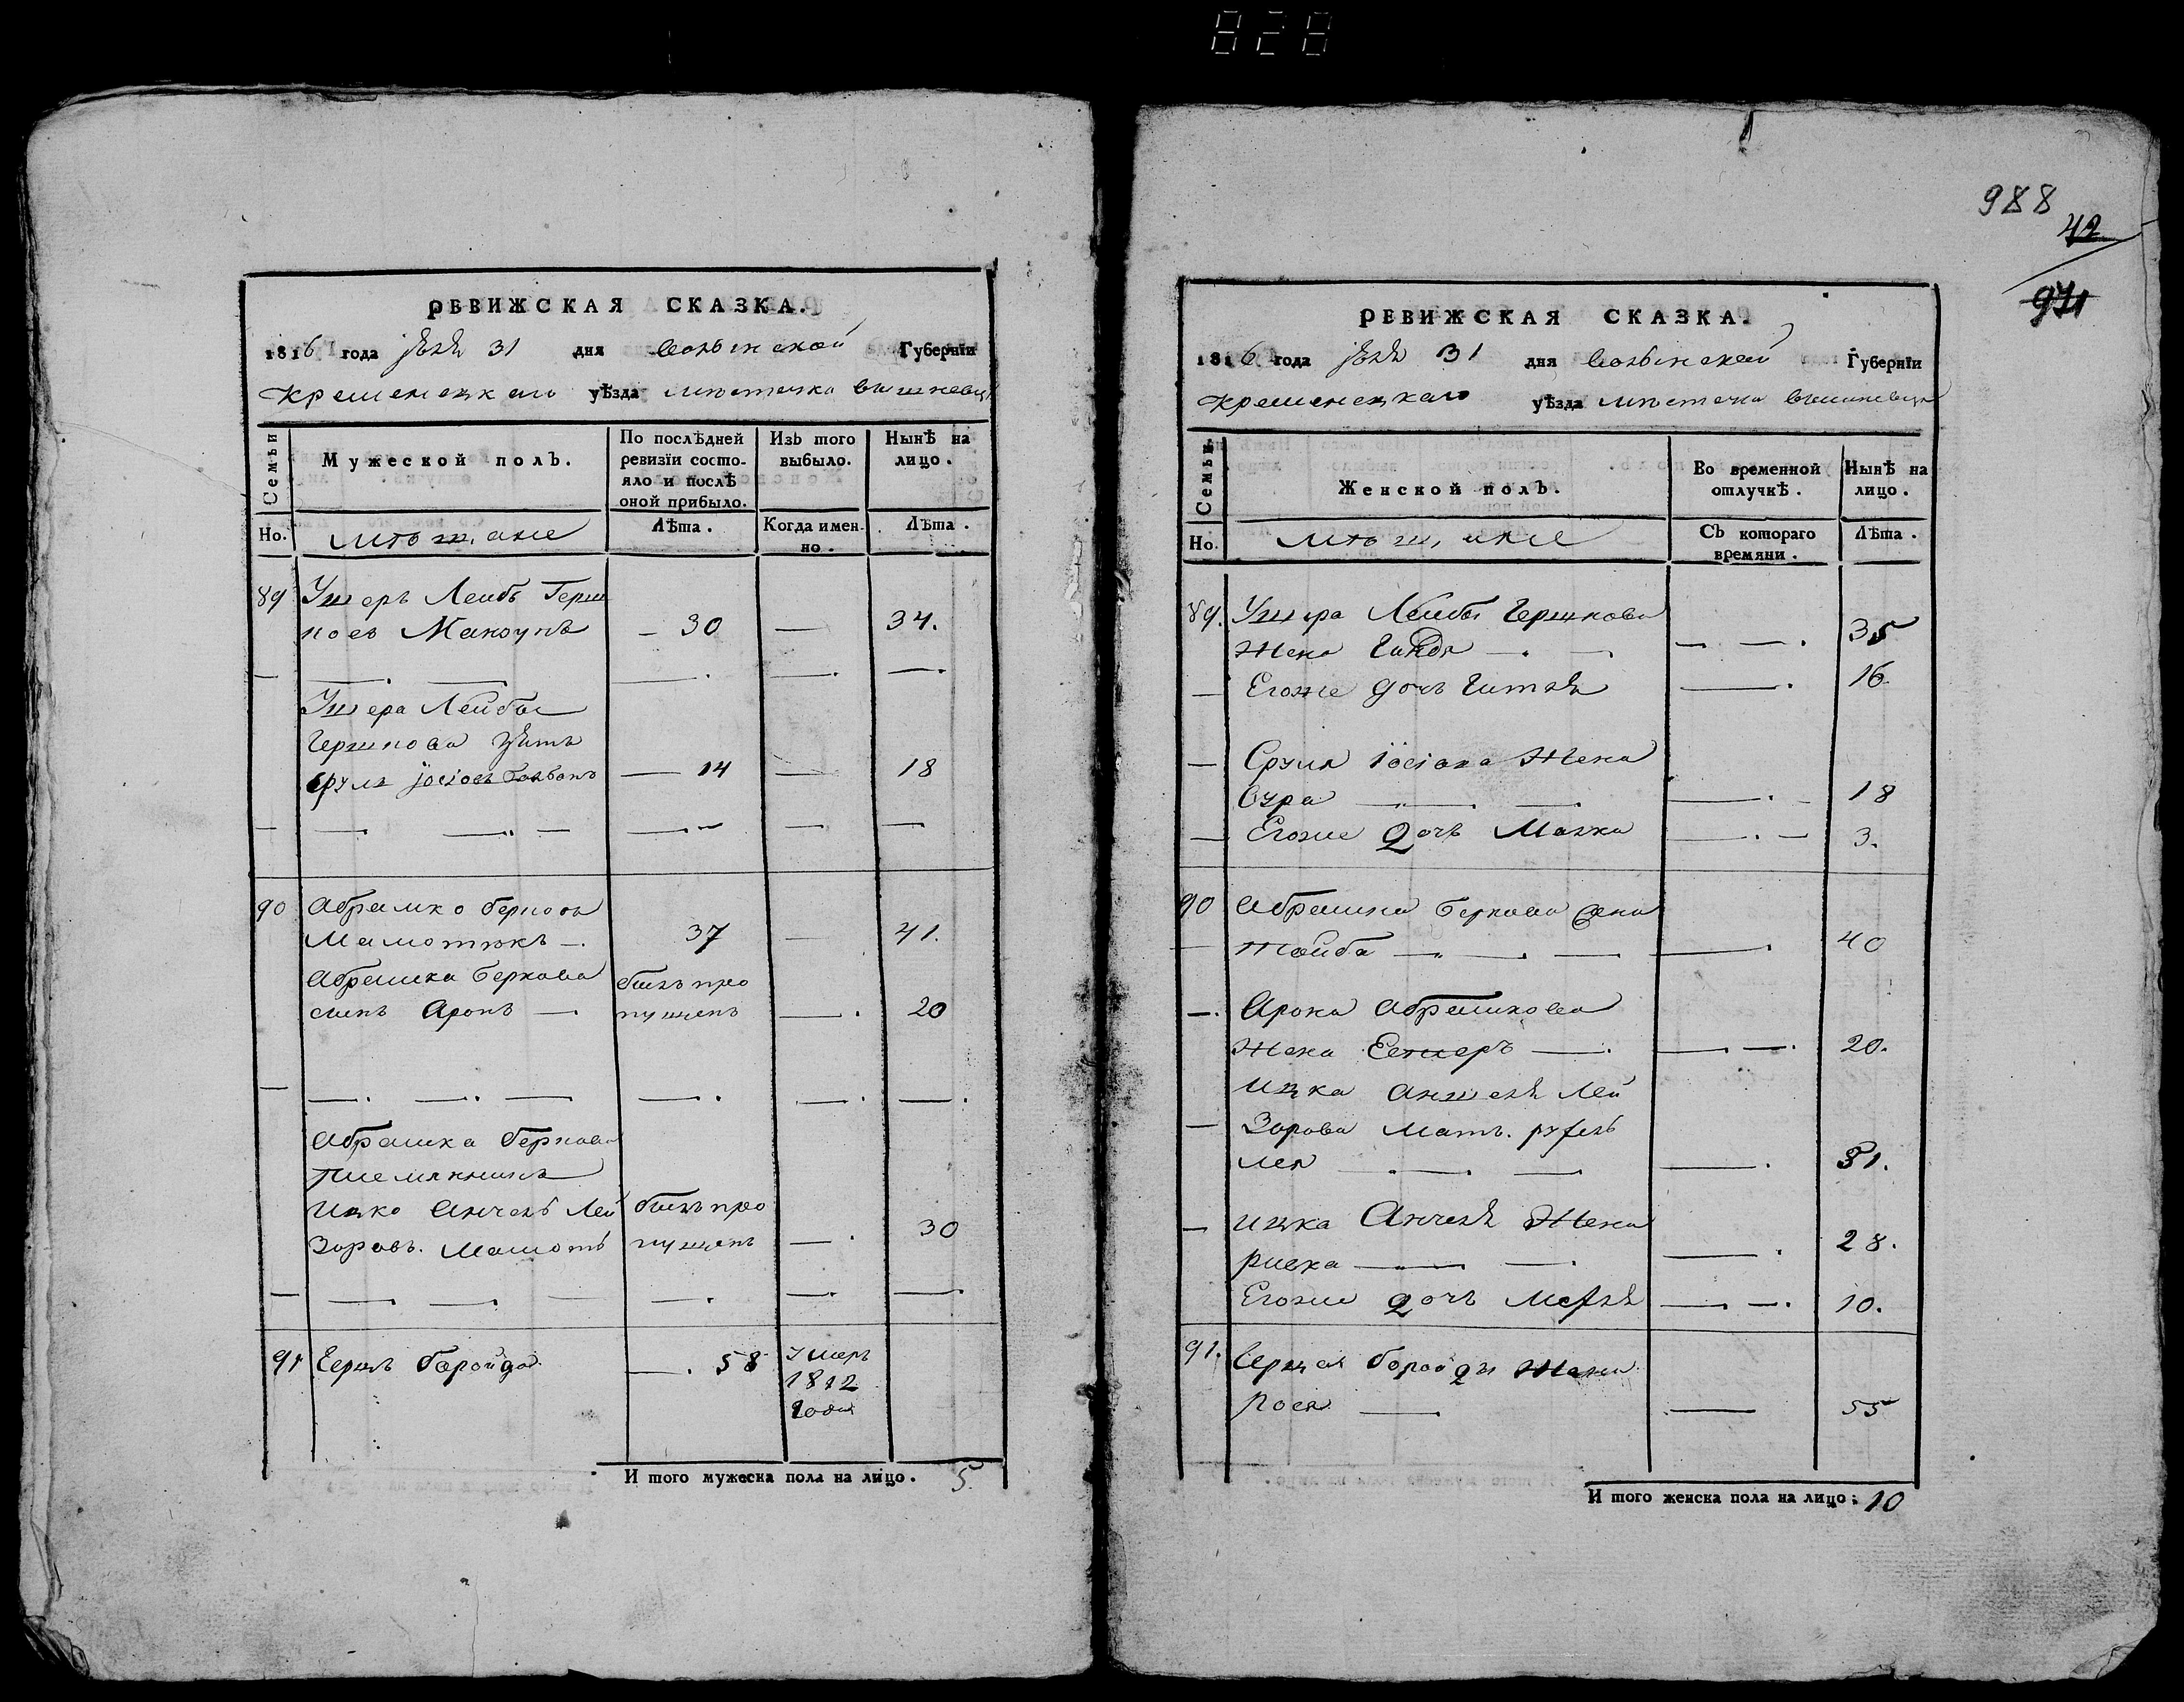 828
988
42
971
РЕВИЖСКАЯ СКАЗКА.
1816 года 31 дня Волынской Губернїи
Кременецкаго уѣзда местечка вишневца
Семьи
Мужеской полъ.
По послѣдней ревизїи состояло и послѣ оной прибыло.
Изъ того выбыло.
Нынѣ на лицо.
Но.
мещане
Лѣта.
Когда именно.
Лѣта.
89 Ушеръ Леибъ Герш
ковъ — 30 — 34.
Ушера Леибы
Гершкова зять
Сруль 14 — 18
90 Абрамко Берковъ
37 — 41.
Абрамка Беркова былъ про
сынъ Аронъ — пущенъ — 20
Абрамка Беркова
племянникъ
Ицко Анчель Лей былъ про
зоровъ. пущенъ — 30
91 Боройда — 58 умеръ
1812
года
И того мужеска пола на лицо. 5.
РЕВИЖСКАЯ СКАЗКА.
1816 года 31 дня Волынской Губернїи
Кременецкаго уѣзда местечка вишневца
Семьи
Женской полъ.
Во временной отлучкѣ.
Нынѣ на лицо.
Но.
мещане
Съ котораго времяни.
Лѣта.
89. Ушера Леибы Гершкова
жена — 35
Егоже дочь Гитля — 16
Сруля жена
Сура — 18
Егоже дочь Малка — 3.
90 Абрамка Беркова жена
Тойба — 40
Арона Абрамкова
жена Естеръ — 20.
Ицка Аншеля Лей
зорова мать.
лея — 81.
Ицка Анчеля жена
Ривка — 28.
Егоже дочь — 10.
91. Боройды жена
Рося — 55
И того женска пола на лицо: 10